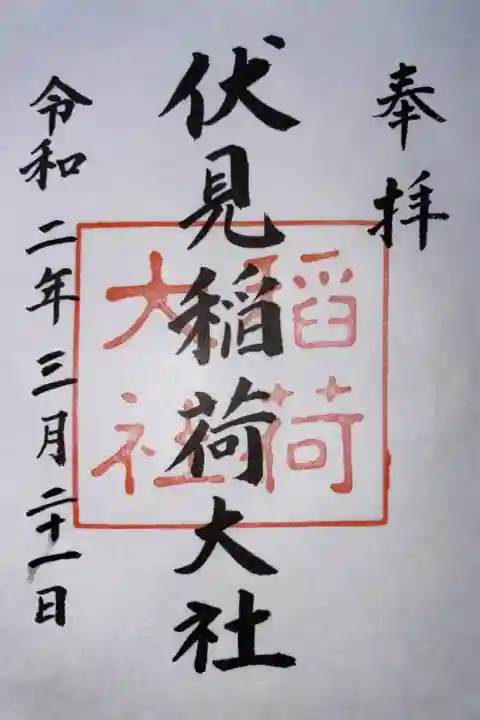 奉拝
伏見稲荷大社
令和二年三月二十一日
稲荷
大社